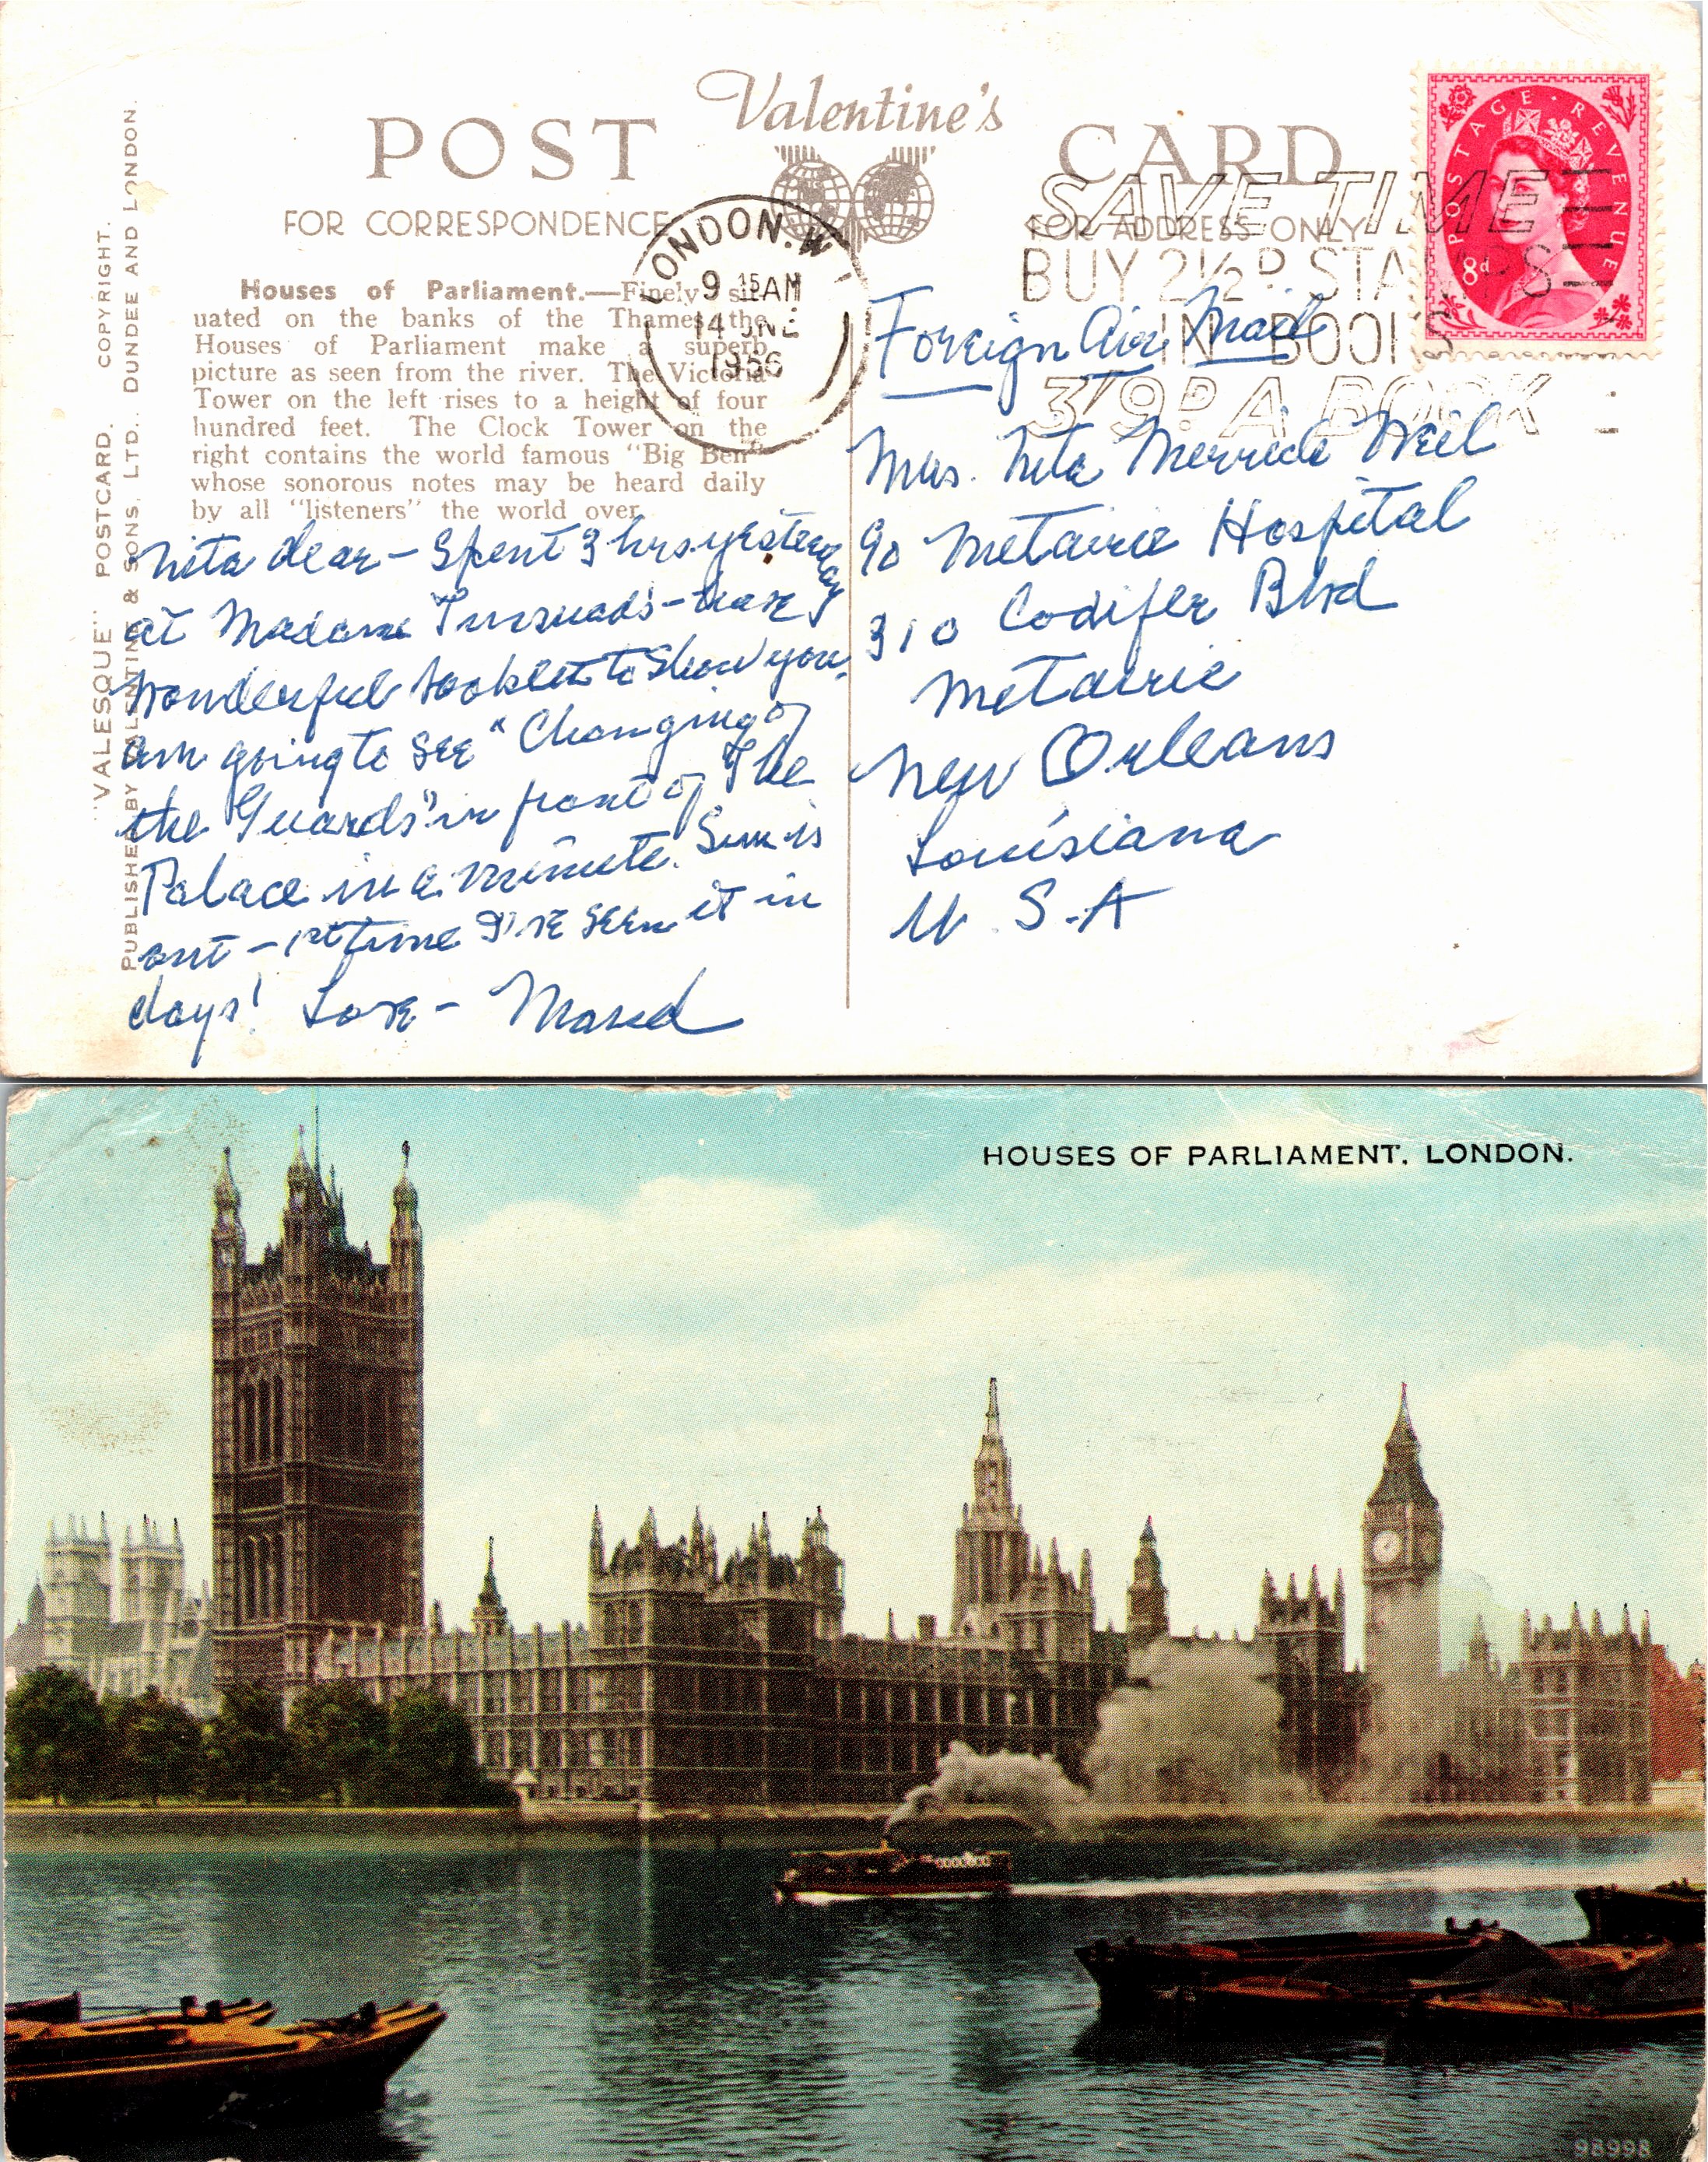 Valentine's
POST CARD
FOR CORRESPONDENCE
FOR ADDRESS ONLY
"VALESQUE" POSTCARD. COPYRIGHT.
PUBLISHED BY VALENTINE & SONS, LTD., DUNDEE AND LONDON.
Houses of Parliament.—Finely sit-
uated on the banks of the Thames the
Houses of Parliament make a superb
picture as seen from the river. The Victoria
Tower on the left rises to a height of four
hundred feet. The Clock Tower on the
right contains the world famous "Big Ben"
whose sonorous notes may be heard daily
by all "listeners" the world over.
LONDON. W
9 15 AM
14 JNE
1956
SAVE TIME
BUY 2½D STAMPS
IN BOOKS
3/9D A BOOK
POSTAGE · REVENUE
8d
Nita dear - Spent 3 hrs yesterday
at Madame Tussuads - have
wonderful booklet to show you.
am going to see "Changing of
the Guards" in front of The
Palace in a minute. Sun is
out - 1st time I've seen it in
days! Love - Maud
Foreign Air Mail
Mrs. Nita Weil
c/o Metairie Hospital
310 Codifer Blvd
Metairie
New Orleans
Louisiana
U. S. A
HOUSES OF PARLIAMENT, LONDON.
98998